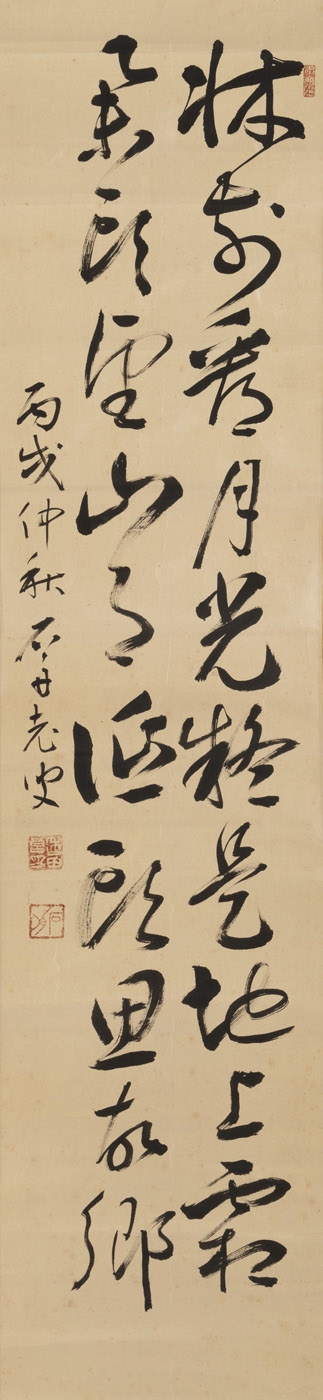 牀前看月光疑是地上霜
舉頭望山月低頭思故鄉
丙戌仲秋石老叟